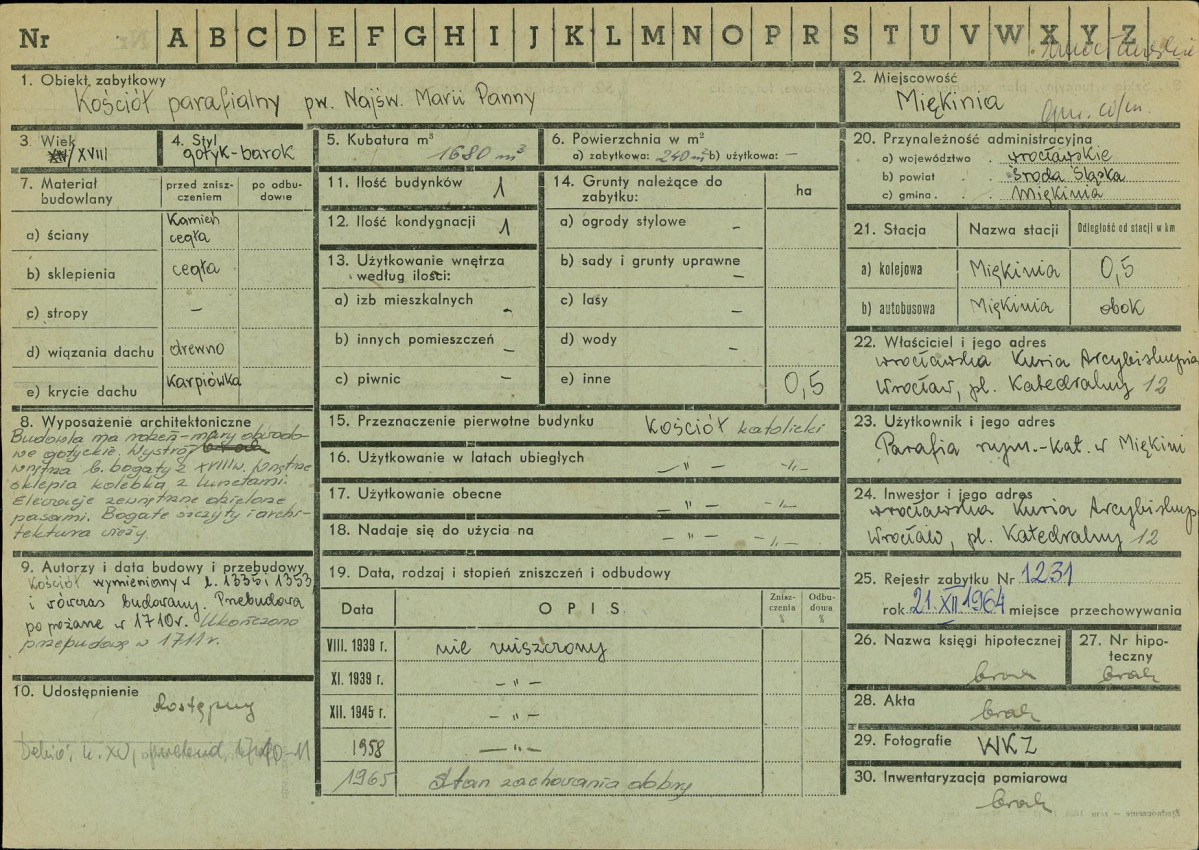 Nr A B C D E F G H I J K L M N O P R S T U V W X Y Z
1. Obiekt zabytkowy
Kościół parafialny pw. Najśw. Marii Panny
2. Miejscowość
Miękinia
3. Wiek
XIV/XVIII
4. Styl
gotyk-barok
5. Kubatura m³
1680 m³
6. Powierzchnia w m²
a) zabytkowa: 240 m² b) użytkowa: —
7. Materiał budowlany
przed zniszczeniem
po odbudowie
a) ściany Kamień cegła
b) sklepienia cegła
c) stropy —
d) wiązania dachu drewno
e) krycie dachu Karpiówka
8. Wyposażenie architektoniczne
Budowla ma
we gotyckie. Wystrój
wnętrza b. bogaty z XVIIIw. Wnętrze
sklepia kolebka z lunetami.
Elewacje zewnętrzne dzielone
pasami. Bogate szczyty i archi-
tektura wieży.
9. Autorzy i data budowy i przebudowy
Kościół wymieniany w r. 1335 i 1353
i wówczas budowany. Przebudowa
po pożarze w 1710r. Ukończono
przebudowę w 1711r.
10. Udostępnienie
dostępny
11. Ilość budynków 1
12. Ilość kondygnacji 1
13. Użytkowanie wnętrza
według ilości:
a) izb mieszkalnych -
b) innych pomieszczeń —
c) piwnic —
14. Grunty należące do
zabytku:
ha
a) ogrody stylowe —
b) sady i grunty uprawne —
c) lasy —
d) wody —
e) inne 0,5
15. Przeznaczenie pierwotne budynku Kościół katolicki
16. Użytkowanie w latach ubiegłych —"— —"—
17. Użytkowanie obecne —"— —"—
18. Nadaje się do użycia na —"— —"—
19. Data, rodzaj i stopień zniszczeń i odbudowy
Data OPIS Zniszczenia % Odbudowa %
VIII. 1939 r. nie zniszczony
XI. 1939 r. —"—
XII. 1945 r. —"—
1958 —"—
1965 Stan zachowania dobry
20. Przynależność administracyjna
a) województwo wrocławskie
b) powiat Środa Śląska
c) gmina Miękinia
21. Stacja Nazwa stacji Odległość od stacji w km
a) kolejowa Miękinia 0,5
b) autobusowa Miękinia obok
22. Właściciel i jego adres
wrocławska Kuria Arcybiskupia
Wrocław, pl. Katedralny 12
23. Użytkownik i jego adres
Parafia rzym.-Kat. w Miękini
24. Inwestor i jego adres
wrocławska Kuria Arcybiskup
Wrocław, pl. Katedralny 12
25. Rejestr zabytku Nr 1231
rok 21.XII 1964 miejsce przechowywania
26. Nazwa księgi hipotecznej
brak
27. Nr hipoteczny
brak
28. Akta
brak
29. Fotografie WKZ
30. Inwentaryzacja pomiarowa
brak